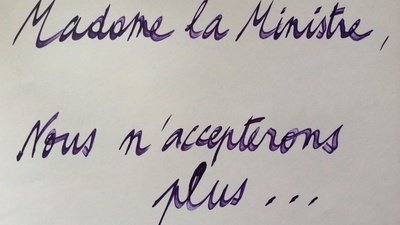 Madame la Ministre,
Nous n'accepterons
plus...